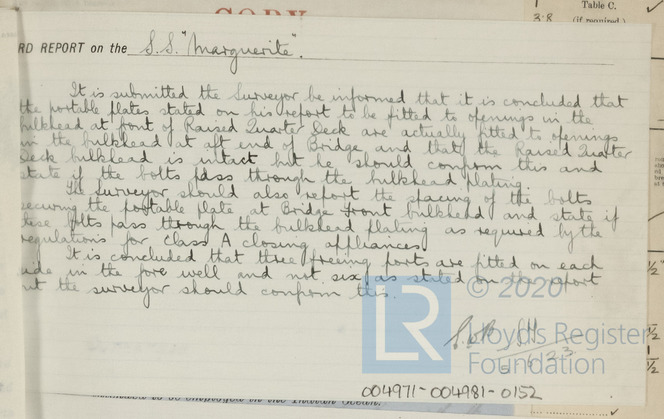 COPY
Table C.
3·8 (if required.)
RD REPORT on the S.S. "Marguerite".
It is submitted the Surveyor be informed that it is concluded that
the portable plates stated on his report to be fitted to openings in the
bulkhead at front of Raised Quarter Deck are actually fitted to openings
in the bulkhead at aft end of Bridge and that the Raised Quarter
Deck bulkhead is intact but he should confirm this and
state if the bolts pass through the bulkhead plating.
The Surveyor should also report the spacing of the bolts
securing the portable plate at Bridge front bulkhead and state if
these bolts pass through the bulkhead plating as required by the
regulations for Class A closing appliances
It is concluded that three freeing ports are fitted on each
side in the fore well and not six as stated on the report
but the surveyor should confirm this.
© 2020
LR
Lloyd's Register
Foundation
004971-004981-0152